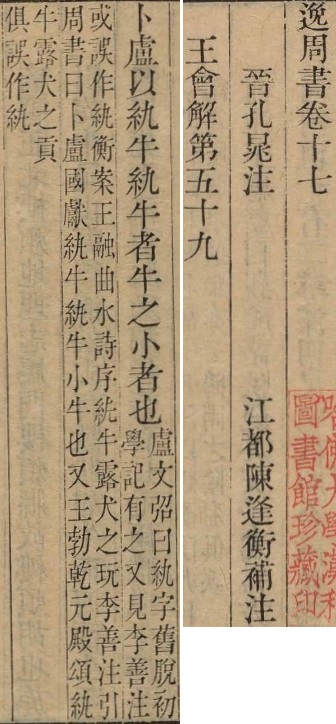 逸周書卷十七
晉孔晁注 江都陳逢衡補注
王會解第五十九
卜盧以紈牛紈牛者牛之小者也盧文弨曰紈字舊脫初
學記有之又見李善注
或誤作紈衡案王融曲水詩序紈牛露犬之玩李善注引
周書曰卜盧國獻紈牛紈牛小牛也又王勃乾元殿頌紈
牛露犬之貢
俱誤作紈
哈佛大學漢和
圖書館珍藏印